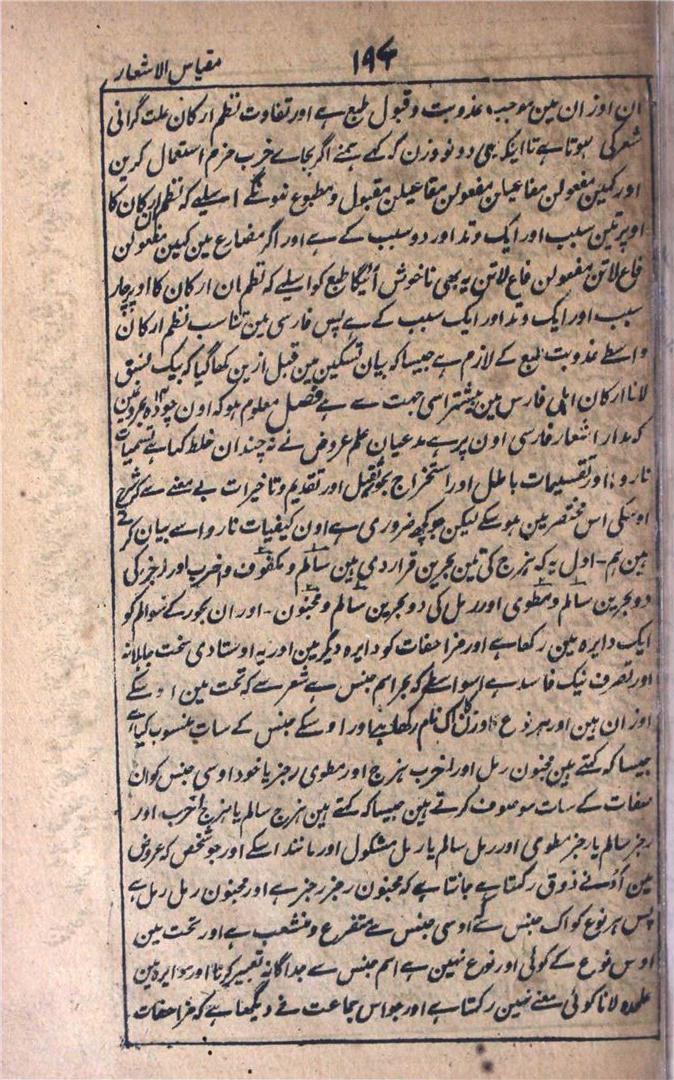 ۱۹۴
مقیاس الاشعار
ان اوزان مین موجب عذوبت و قبول طبع ہے اور تفاوت نظم ارکان علت گرانی
شعر کی ہوتا ہے تا اینکہ یہی دونو وزن کہ کہے ہمنے اگر بجاے خرب خرم استعمال کرین
اور کہین مفعولن مفاعیلن مفعولن مفاعیلن مقبول و مطبوع نہونگے اسلیے کہ نظم ان ارکان کا
اوپر تین سبب اور ایک وتد اور دو سبب کے ہے اور اگر مضارع مین کہین مفعولن
فاع لاتن مفعولن فاع لاتن یہ بھی ناخوش آئیگا طبع کو اسلیے کہ نظم ان ارکان کا اوپر چار
سبب اور ایک وتد اور ایک سبب کے ہے پس فارسی مین تناسب نظم ارکان
واسطے عذوبت طبع کے لازم ہے جیسا کہ بیان تسکین مین قبل ازین کہا گیا کہ بیک نسق
لانا ارکان اہل فارس مین بیشتر اسی جہت سے ہے فصل معلوم ہو کہ اون چودہ بحرونمین
کہ مدار اشعار فارسی اون پر ہے مدعیان علم عروض نے نہ چندان خلط کیا ہے تسمیات
ناروا اور تقسیمات باطل اور استخراج بحور ثقیل اور تقدیم و تاخیرات بے معنے سے کہ شرح
اوسکی اس مختصر مین ہو سکے لیکن جو کچھ ضروری ہے اون کیفیات ناروا سے بیان کرتے
ہین ہم۔ اول یہ کہ ہزج کی تین بحرین قرار دی ہین سالم و مکفوف و اخرب اور رجز کی
دو بحرین سالم و مطوی اور رمل کی دو بحرین سالم و مخبون۔ اور ان بحور کے سوالم کو
ایک دایرہ مین رکھا ہے اور مزاحفات کو دایرہ دیگر مین اور یہ اوستادی سخت جاہلانہ
اور تصرف نیک فاسد ہے اسواسطے کہ بحر اسم جنس ہے شعر سے کہ تحت مین اوسکے
اوزان ہین اور ہر نوع اوزان کا اک نام رکھا ہے اور اوسکے جنس کے سات منسوب کیا ہے
جیسا کہ کہتے ہین مخبون رمل اور اخرب ہزج اور مطوی رجز یا خود اوسی جنس کو ان
صفات کے سات موصوف کرتے ہین جیسا کہ کہتے ہین ہزج سالم یا ہزج اخرب اور
رجز سالم یا رجز مطوی اور رمل سالم یا رمل مشکول اور مانند اسکے اور جو شخص کہ عروض
مین ادنے ذوق رکھتا ہے جانتا ہے کہ مخبون رجز رجز ہے اور مخبون رمل رمل ہے
پس ہر نوع کو اک جنس کے اوسی جنس سے متفرع و منشعب ہے اور تحت مین
اوس نوع کے کوئی اور نوع نہین ہے اسم جنس سے جداگانہ تعبیر کرنا اور دوایرہ مین
علحدہ لانا کوئی معنے نہین رکھتا ہے اور جو اس جماعت نے دیکھا ہے کہ مزاحفات